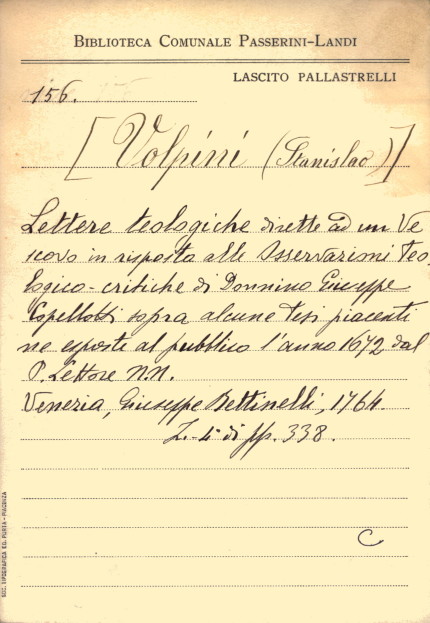 BIBLIOTECA COMUNALE PASSERINI-LANDI
LASCITO PALLASTRELLI
156.
[Volpini (Stanislao)]
Lettere teologiche dirette ad un Ve
scovo in risposta alle Osservazioni teo
logico-critiche di Donnino Giuseppe
Copellotti sopra alcune tesi piacenti
ne esposte al pubblico l'anno 1672 dal
P. Lettore N.N.
Venezia, Giuseppe Bettinelli, 1764.
in 4° di pp. 338.
C
SOC. TIPOGRAFICA ED. PORTA - PIACENZA